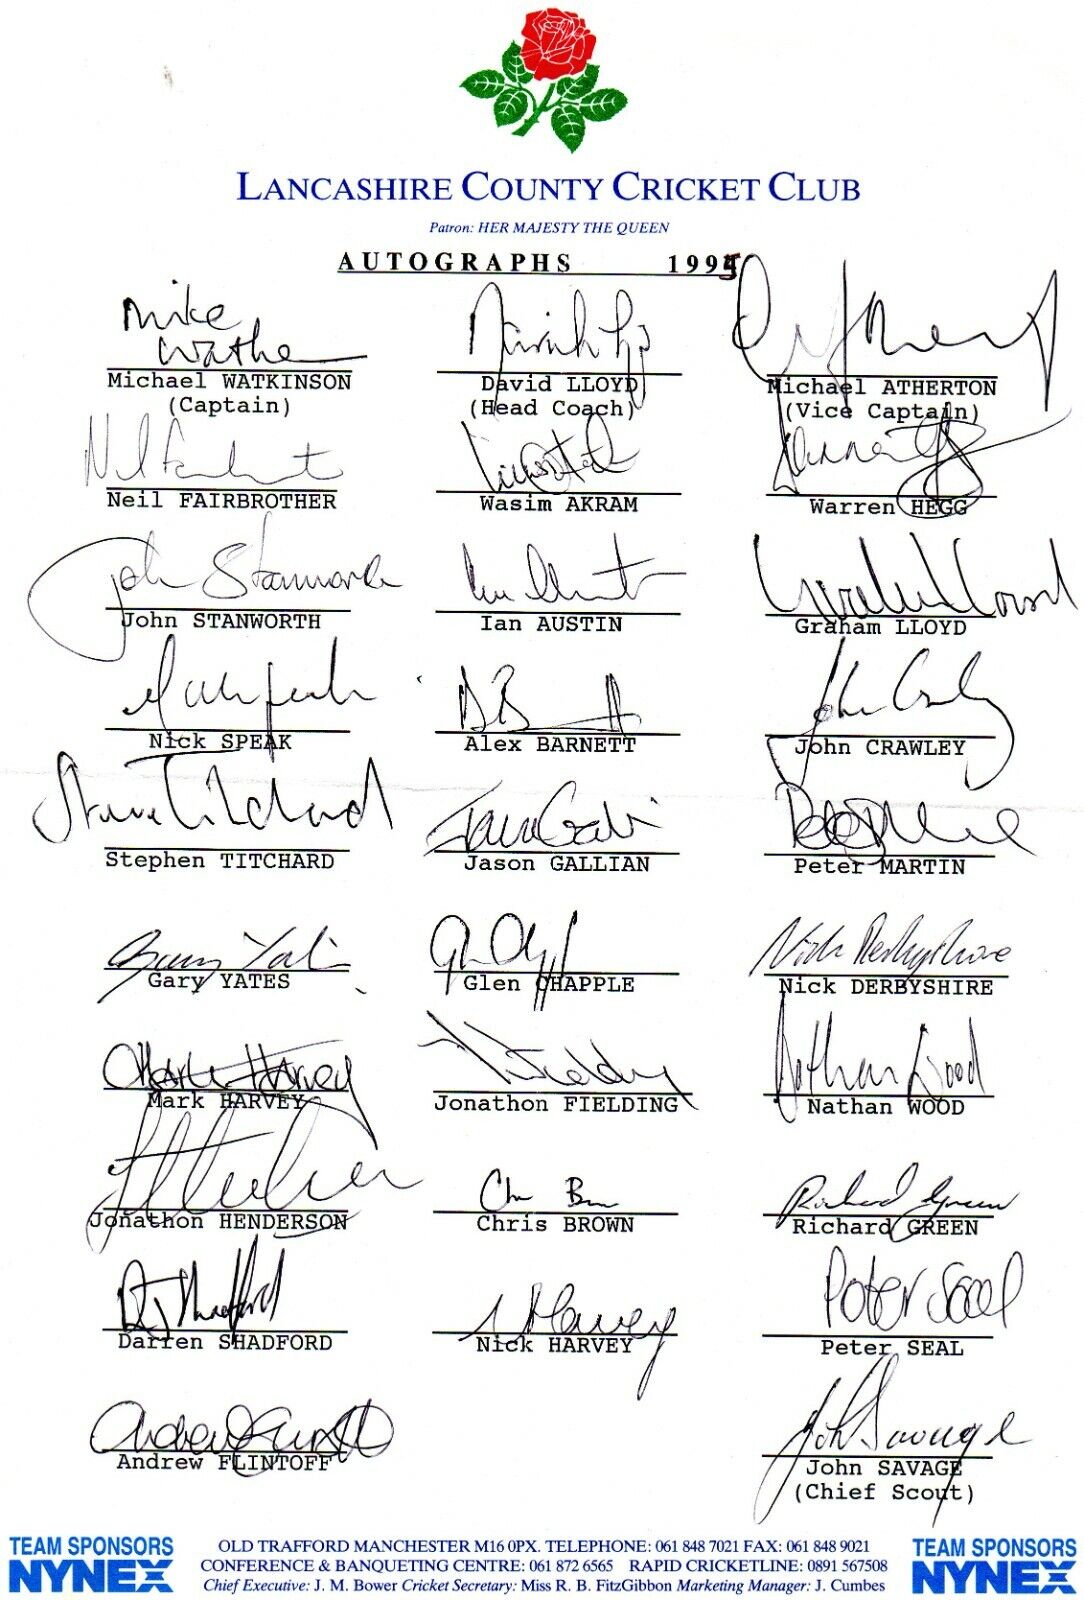 LANCASHIRE COUNTY CRICKET CLUB
Patron: HER MAJESTY THE QUEEN
AUTOGRAPHS 1995
Mike Watkinson
Michael WATKINSON
(Captain)
David LLOYD
(Head Coach)
Michael ATHERTON
(Vice Captain)
Neil Fairbrother
Neil FAIRBROTHER
Wasim AKRAM
Warren HEGG
John Stanworth
John STANWORTH
Ian AUSTIN
Graham Lloyd
Graham LLOYD
Nick SPEAK
Alex BARNETT
John Crawley
John CRAWLEY
Steve Titchard
Stephen TITCHARD
Jason GALLIAN
Peter MARTIN
Gary Yates
Gary YATES
Glen CHAPPLE
Nick Derbyshire
Nick DERBYSHIRE
Mark Harvey
Mark HARVEY
Jonathon FIELDING
Nathan Wood
Nathan WOOD
Jonathon HENDERSON
Chris BROWN
Richard Green
Richard GREEN
D J Shadford
Darren SHADFORD
N Harvey
Nick HARVEY
Peter Seal
Peter SEAL
Andrew Flintoff
Andrew FLINTOFF
John Savage
John SAVAGE
(Chief Scout)
TEAM SPONSORS
NYNEX
OLD TRAFFORD MANCHESTER M16 0PX. TELEPHONE: 061 848 7021 FAX: 061 848 9021
CONFERENCE & BANQUETING CENTRE: 061 872 6565 RAPID CRICKETLINE: 0891 567508
Chief Executive: J. M. Bower Cricket Secretary: Miss R. B. FitzGibbon Marketing Manager: J. Cumbes
TEAM SPONSORS
NYNEX